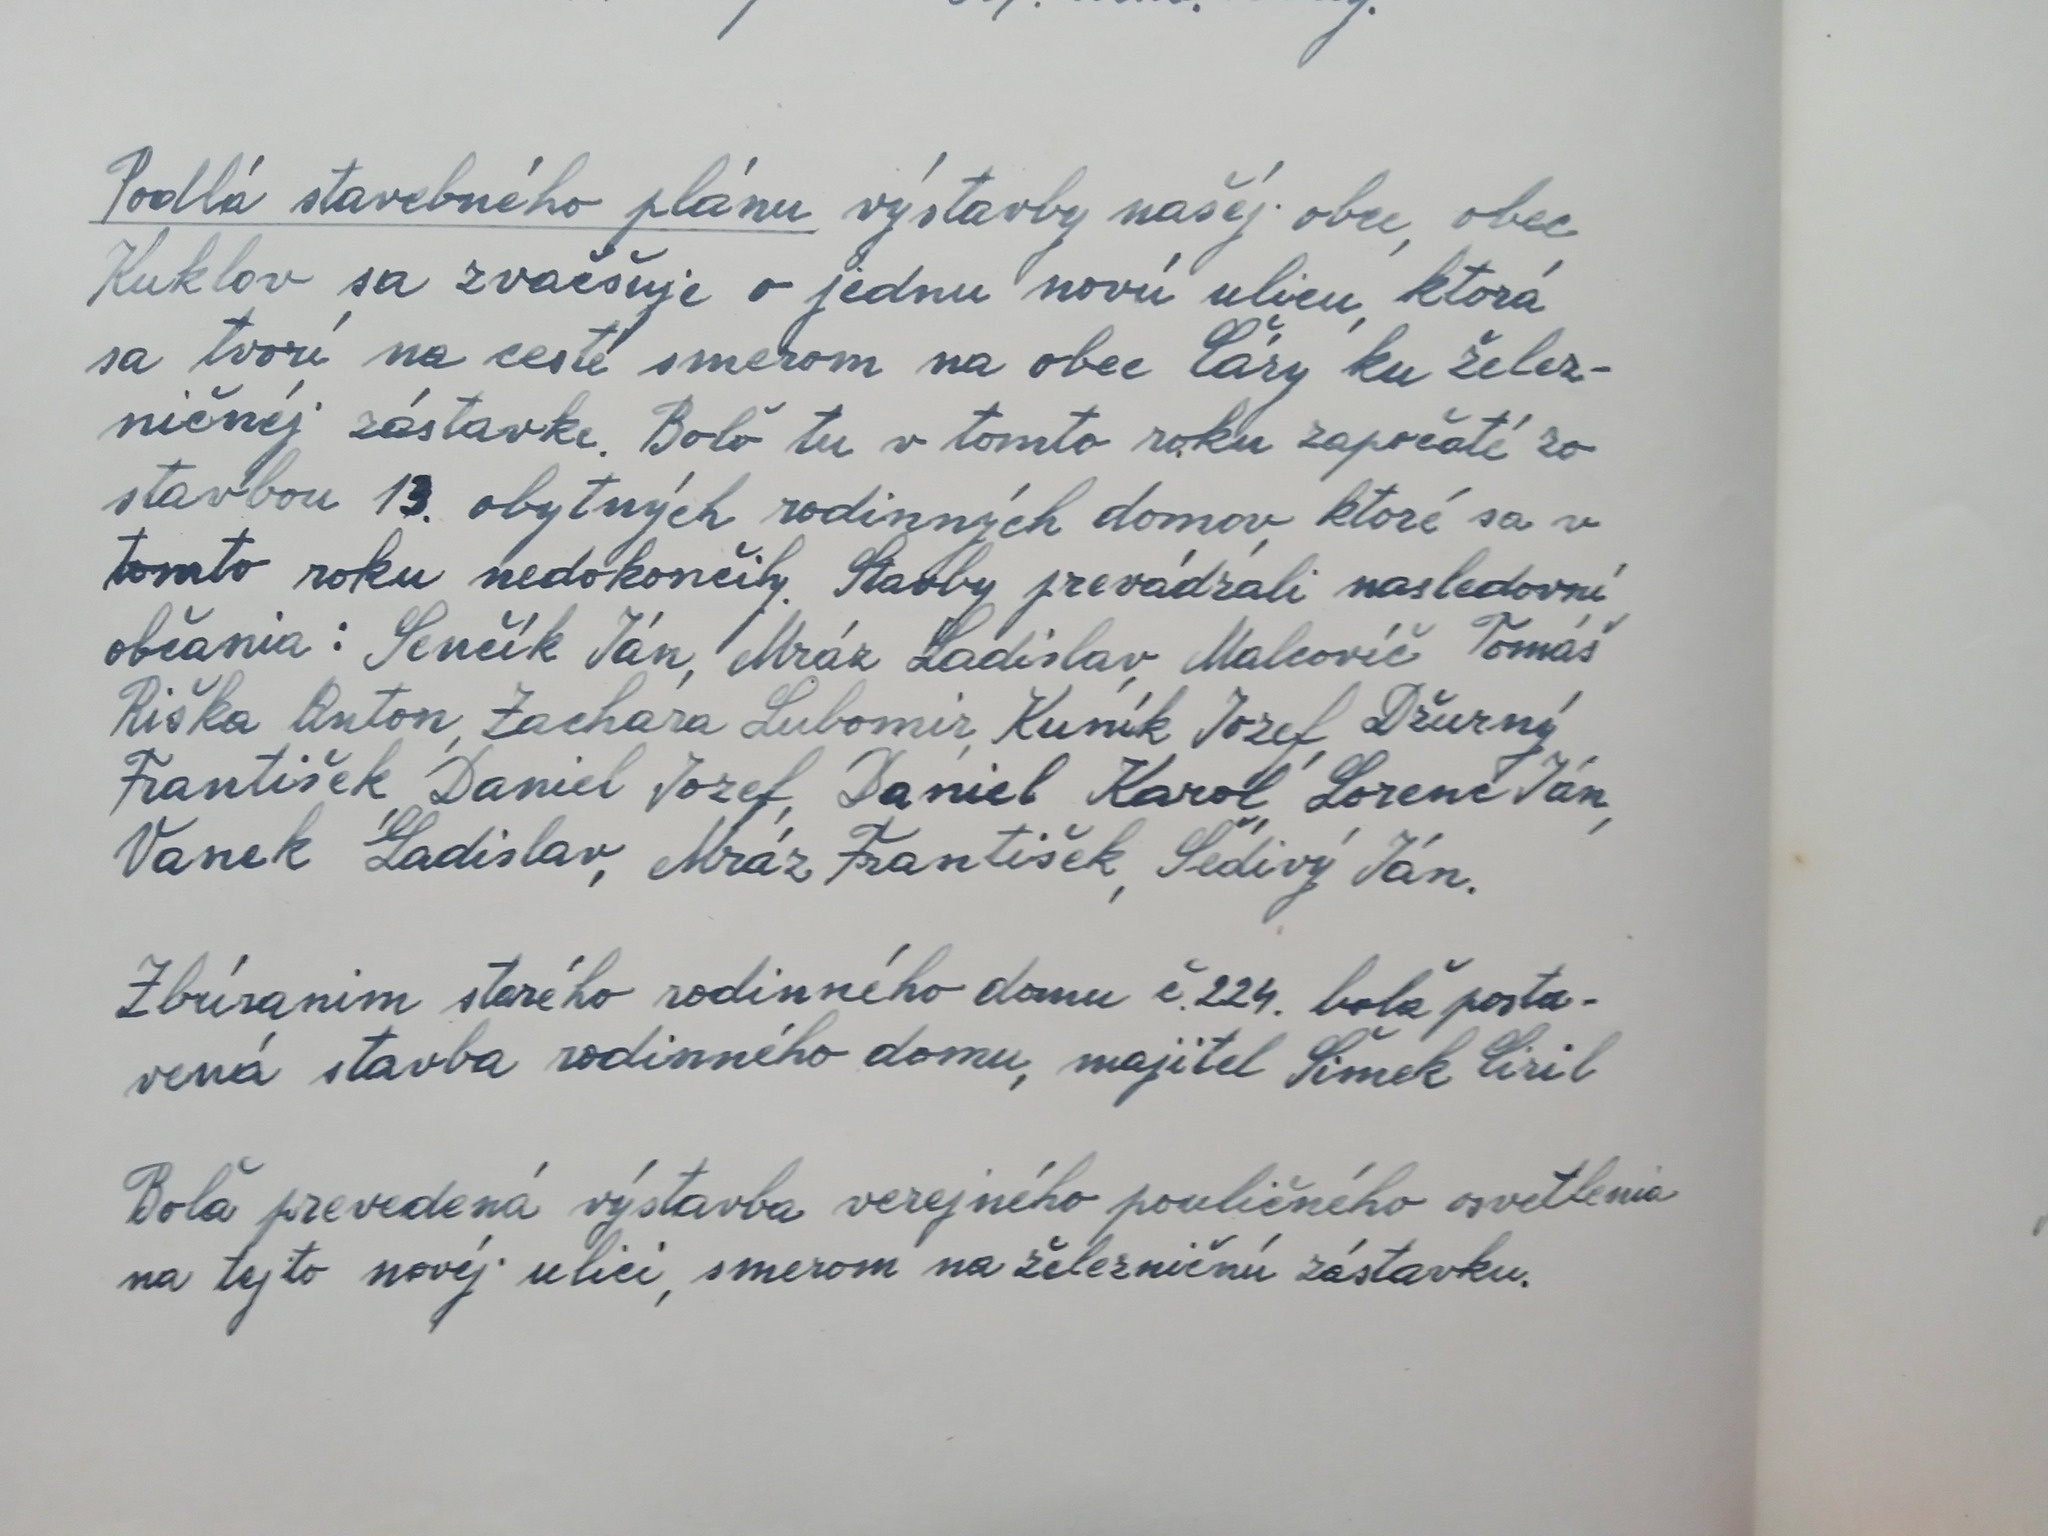 Podlá stavebného plánu výstavby našéj obce, obec
Kuklov sa zvačšuje o jednu novú ulicu, ktorá
sa tvorí na cesté smerom na obec Čáry ku želez-
ničnéj zástavke. Bolo tu v tomto roku započaté zo
stavbou 13. obytných rodinných domov, ktoré sa v
tomto roku nedokončily. Stavby prevádzali nasledovní
občania: Senčík Ján, Mráz Ladislav, Malcovič Tomáš
Riška Anton, Zachára Lubomir, Kuník Jozef, Džurný
František, Daniel Jozef, Daniel Karol, Lorenc Ján,
Vanek Ladislav, Mráz František, Šedivý Ján.
Zbúranim starého rodinného domu č. 224. bola posta-
vená stavba rodinného domu, majitel Šimek Ciril
Bola prevedená výstavba verejného pouličného osvetlenia
na tejto novéj ulici, smerom na železničnú zástavku.